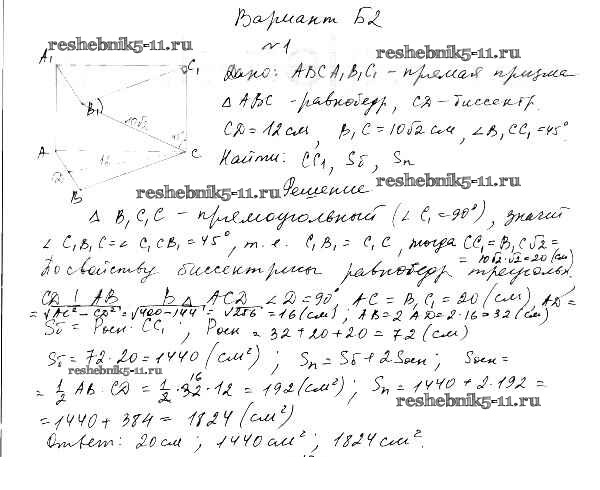 Вариант Б2
reshebnik5-11.ru
№1
reshebnik5-11.ru
A₁
C₁
B₁
10√2
45°
A
12
C
D
B
Дано: ABCA₁B₁C₁ - прямая призма
△ ABC - равнобедр, CD - биссектр.
CD = 12 см, B₁C = 10√2 см, ∠B₁CC₁ = 45°
Найти: CC₁, Sб, Sп
reshebnik5-11.ru
Решение
△ B₁C₁C - прямоугольный (∠C₁ = 90°), значит
∠ C₁B₁C = ∠ C₁CB₁ = 45°, т.е. C₁B₁ = C₁C, тогда CC₁ = B₁C√2 =
= 10√2·√2 = 20 (см)
По свойству биссектрисы равнобедр треугольн.
CD ⊥ AB В △ ACD ∠D = 90° AC = B₁C₁ = 20 (см), AD =
= √AC² - CD² = √400-144 = √256 = 16 (см); AB = 2AD = 2·16 = 32 (см)
Sб = Pосн · CC₁; Pосн = 32 + 20 + 20 = 72 (см)
Sб = 72·20 = 1440 (см²); Sп = Sб + 2Sосн; Sосн =
reshebnik5-11.ru
= 1/2 AB · CD = 1/2 · 32 · 12 = 192 (см²); Sп = 1440 + 2·192 =
16
reshebnik5-11.ru
= 1440 + 384 = 1824 (см²)
Ответ: 20 см; 1440 см²; 1824 см².